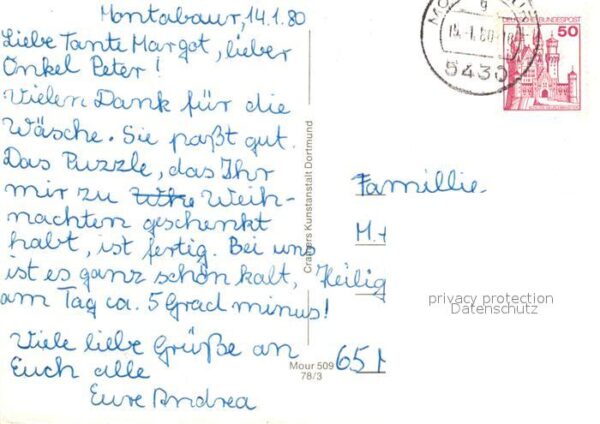 Montabaur, 14.1.80
Liebe Tante Margot, lieber
Onkel Peter!
Vielen Dank für die
Wäsche. Sie paßt gut.
Das Puzzle, das Ihr
mir zu Weih-
nachten geschenkt
habt, ist fertig. Bei uns
ist es ganz schön kalt,
am Tag ca. 5 Grad minus!
Viele liebe Grüße an
Euch alle
Eure Andrea
Cramers Kunstanstalt Dortmund
Mour 509
78/3
5430
DEUTSCHE BUNDESPOST
50
Famillie
M. +
Heilig
651
privacy protection
Datenschutz